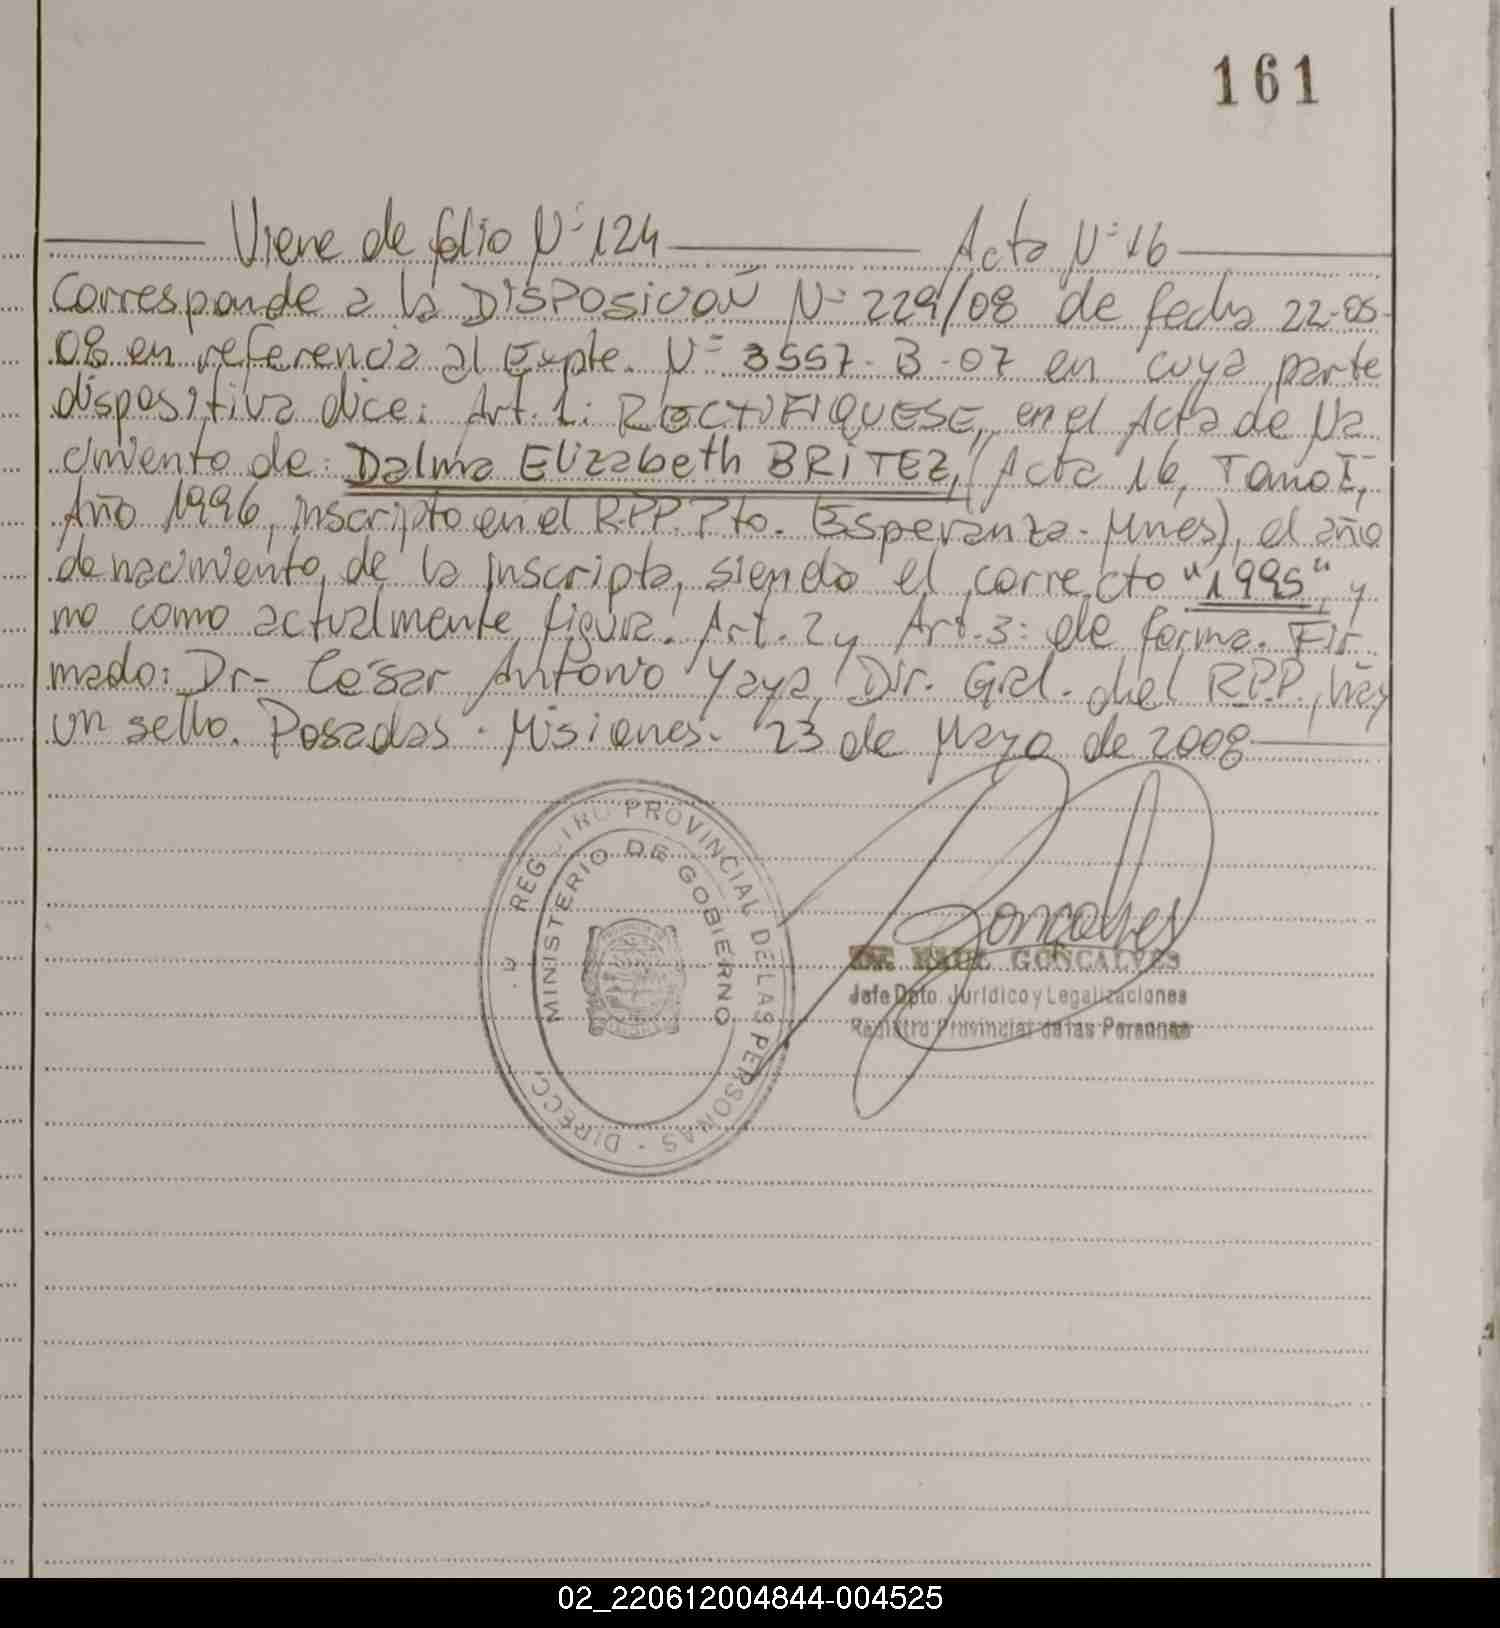 161
Viene de folio Nº 124 Acta Nº 16
Corresponde a la DISPOSICION Nº 229/08 de fecha 22-05-
08 en referencia al Expte. Nº 3557-B-07 en cuya parte
dispositiva dice: Art. 1: RECTIFIQUESE, en el Acta de Na
cimiento de: Dalma Elizabeth BRITEZ, (Acta 16, Tomo I,
Año 1996, inscripto en el R.P.P. Pto. Esperanza - Mnes), el año
de nacimiento, de la inscripta, siendo el correcto "1995", y
no como actualmente figura. Art. 2 y Art. 3: de forma. Fir
mado: Dr- César Antonio Yaya, Dir. Gral. del R.P.P., hay
un sello. Posadas - Misiones. 23 de Mayo de 2008
REGISTRO PROVINCIAL DE LAS PERSONAS - DIRECC
MINISTERIO DE GOBIERNO
Goncalves
Dr. RAUL GONCALVES
Jefe Dpto. Jurídico y Legalizaciones
Registro Provincial de las Personas
02_220612004844-004525